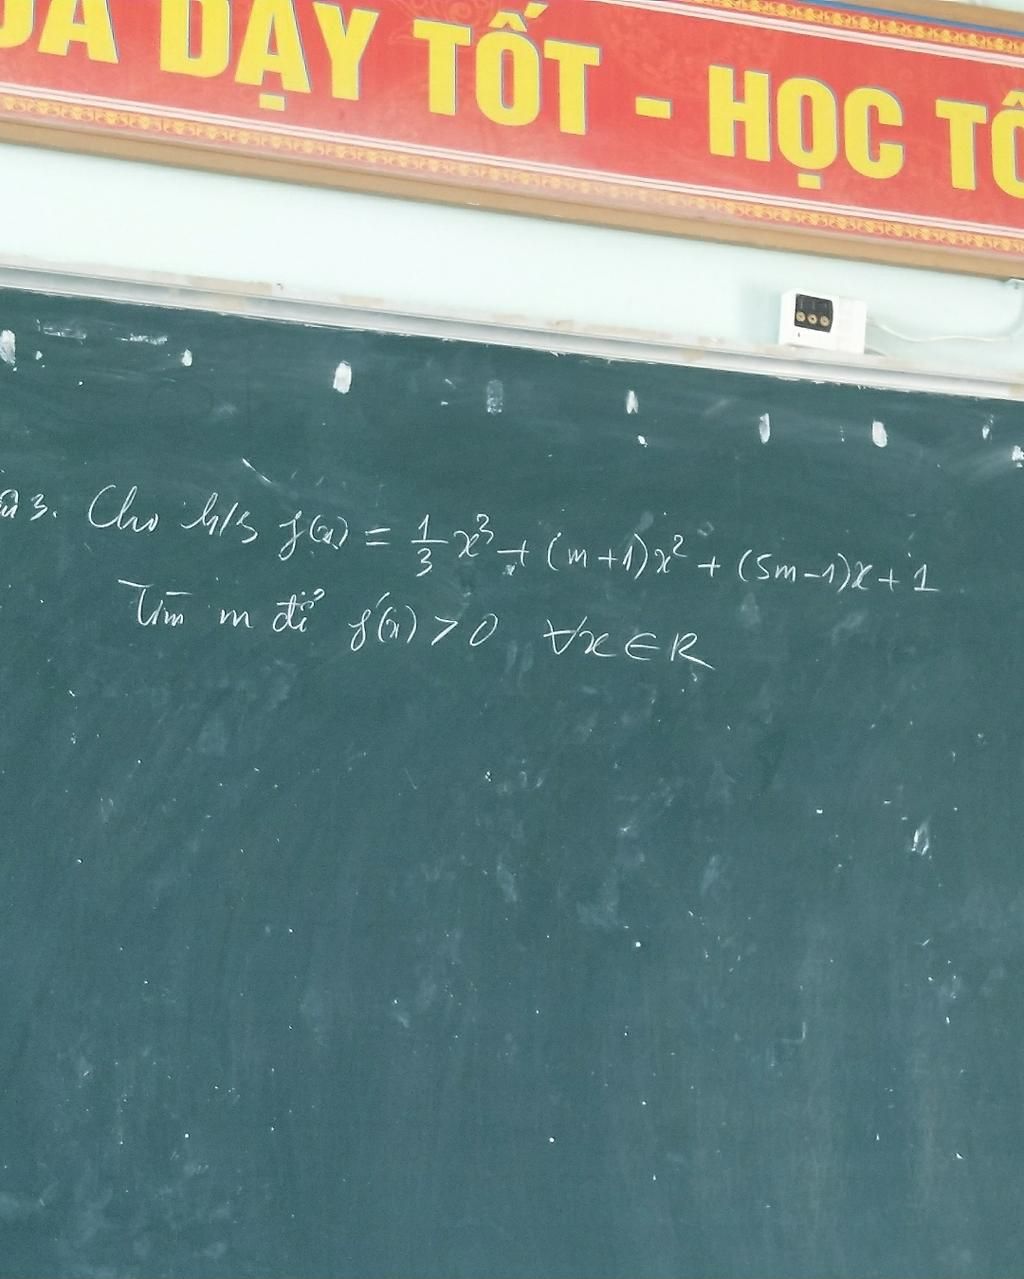 DẠY TỐT - HỌC TỐ
3. Cho h/s f(x) = \frac{1}{3}x³ + (m+1)x² + (5m-1)x + 1
Tìm m để f'(x) > 0 ∀x ∈ R